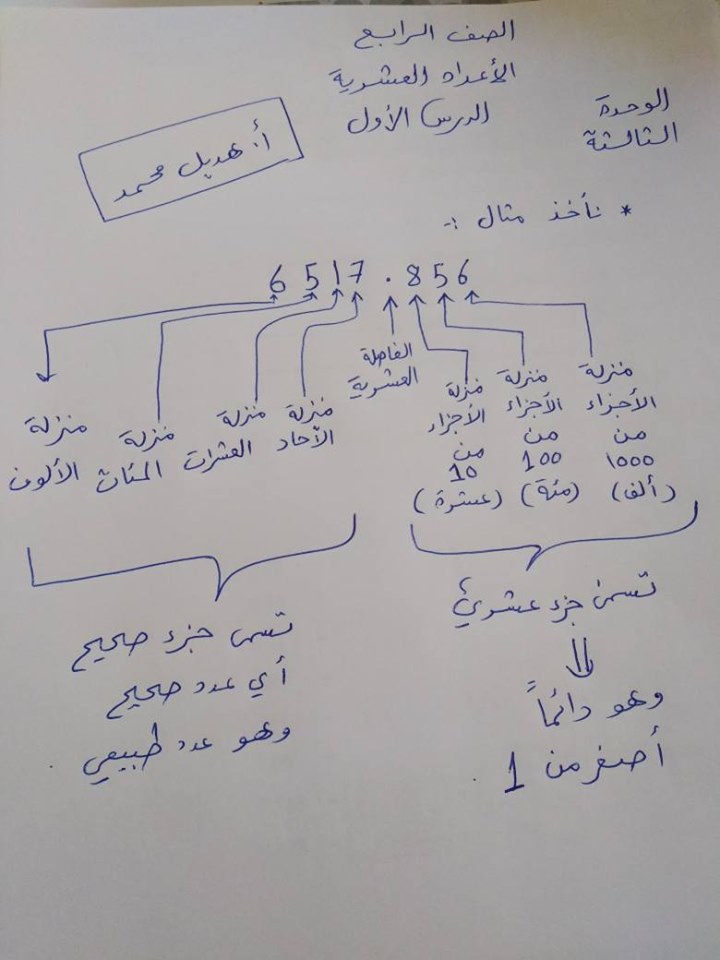 الصف الرابع
الأعداد العشرية
الدرس الأول
الوحدة
الثالثة
أ. هديل محمد
* نأخذ مثال :-
6517.856
منزلة
الأجزاء
من
١٠٠٠
(ألف)
منزلة
الأجزاء
من
100
(مئة)
منزلة
الأجزاء
من
10
(عشرة)
الفاصلة
العشرية
منزلة
الآحاد
منزلة
العشرات
منزلة
المئات
منزلة
الألوف
تسمى جزء عشري
وهو دائماً
أصغر من 1
تسمى جزء صحيح
أي عدد صحيح
وهو عدد طبيعي.